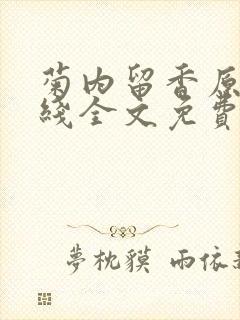 菊内留香原
綫全文免費
夢枕貘 雨依